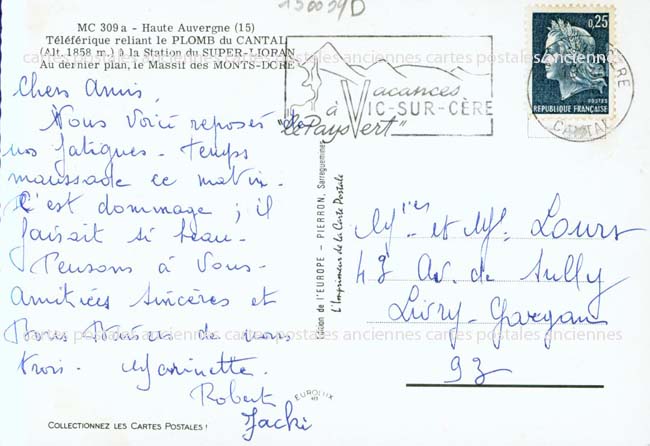 130039D
MC 309 a - Haute Auvergne (15)
Téléférique reliant le PLOMB du CANTAL
(Alt. 1858 m.) à la Station du SUPER-LIORAN
Au dernier plan, le Massif des MONTS-DORE
0,25
POSTES
REPUBLIQUE FRANÇAISE
CANTAL
Vacances
à VIC-SUR-CÈRE
"le Pays Vert"
cartes postales anciennes cartes postales anciennes cartes postales anciennes
Chers Amis,
Nous voici reposés de
nos fatigues - temps
maussade ce matin.
C'est dommage ; il
faisait si beau -
Pensons à Vous -
Amitiés sincères et
Bons Baisers de nous
trois - Marinette.
Robert
Jacki
Édition de l'EUROPE - PIERRON, Sarreguemines
L'Imprimeur de la Carte Postale
et M. Lours
48 Av. de Sully
Livry-Gargan
93
cartes postales anciennes cartes postales anciennes cartes postales anciennes
EUROLUX
COLLECTIONNEZ LES CARTES POSTALES !